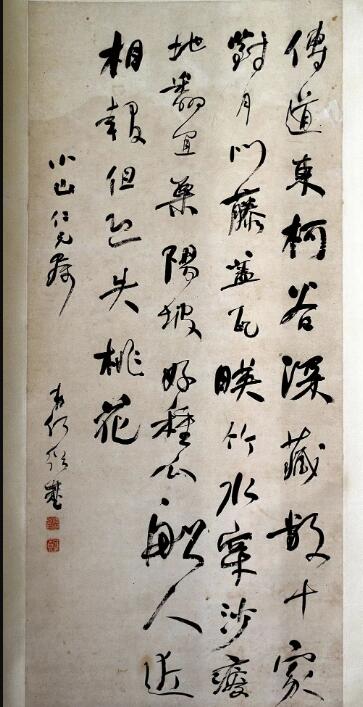 傳道東柯谷深藏數十家
對月门藤盖瓦暎竹水穿沙瘦
地翻宜粟陽坡好種瓜船人近
相報但恐失桃花
小山仁兄屬